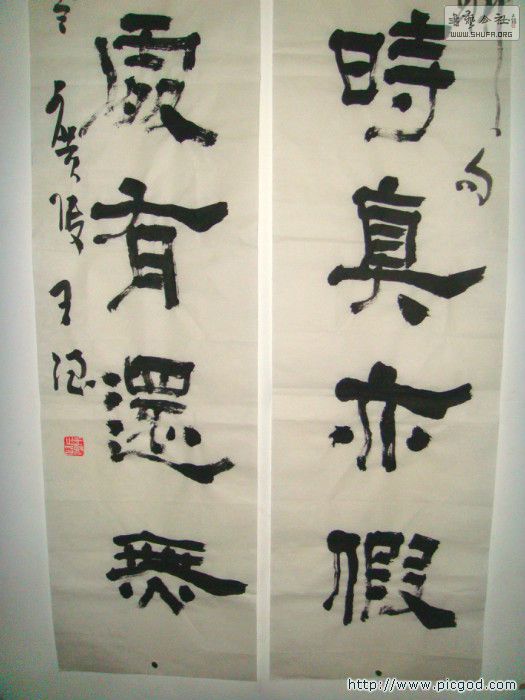 時真亦假
句
處有還無
書藝公社
WWW.SHUFA.ORG
http://www.picgod.com